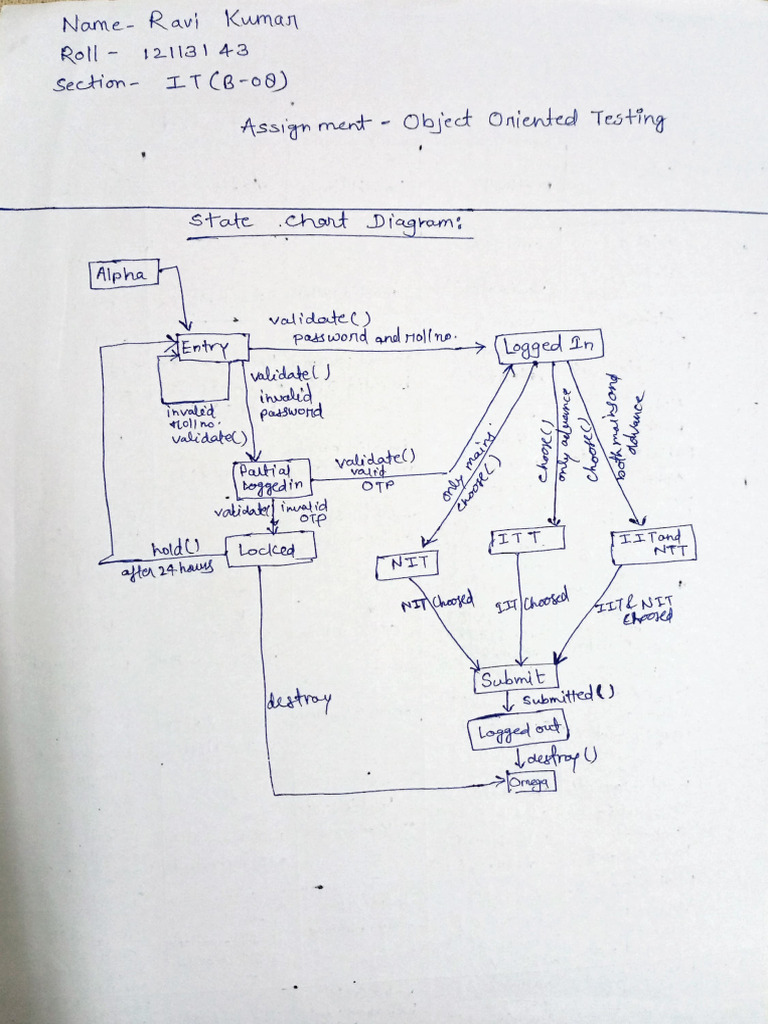 Name- Ravi Kumar
Roll - 12113143
Section- IT (B-08)
Assignment - Object Oriented Testing
State Chart Diagram:
Alpha
validate()
password and roll no.
Entry
Logged In
validate()
invalid
password
invalid
roll no.
validate()
only mains.
choose()
choose()
only advance
choose()
both mains and
advance
Partial
Logged in
validate()
valid
OTP
validate() invalid
OTP
hold()
after 24 hours
Locked
NIT
IIT
IIT and
NIT
NIT choosed
IIT choosed
IIT & NIT
choosed
Submit
submitted()
destroy
Logged out
destroy()
Omega